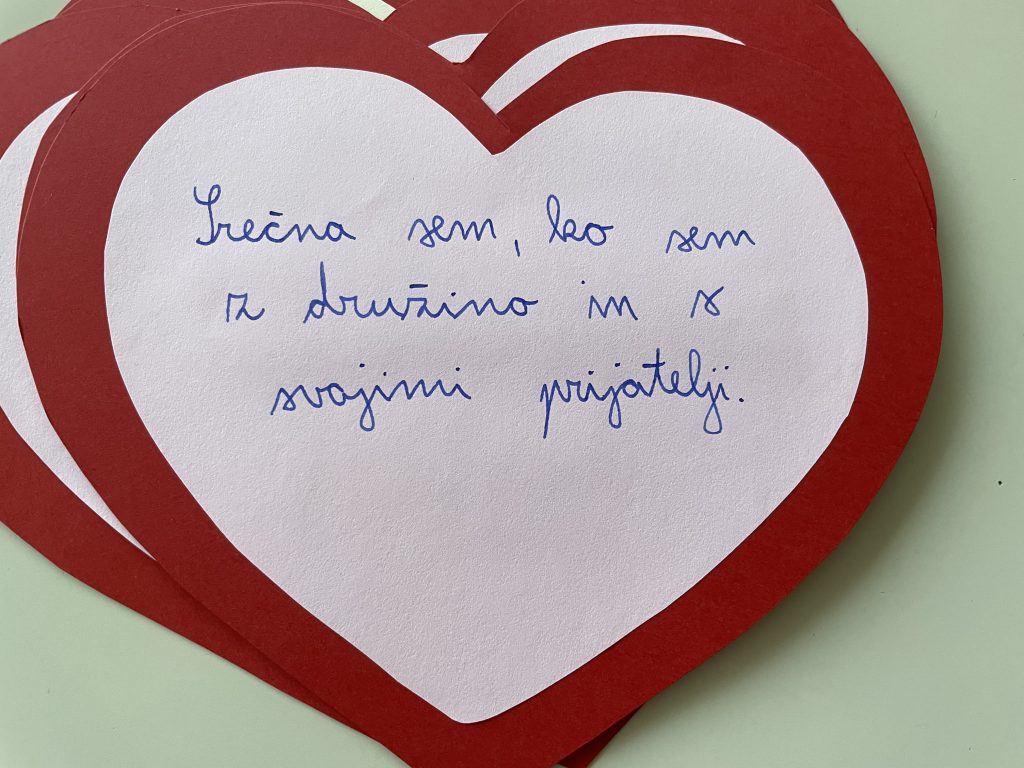 Srečna sem, ko sem
z družino in s
svojimi prijatelji.